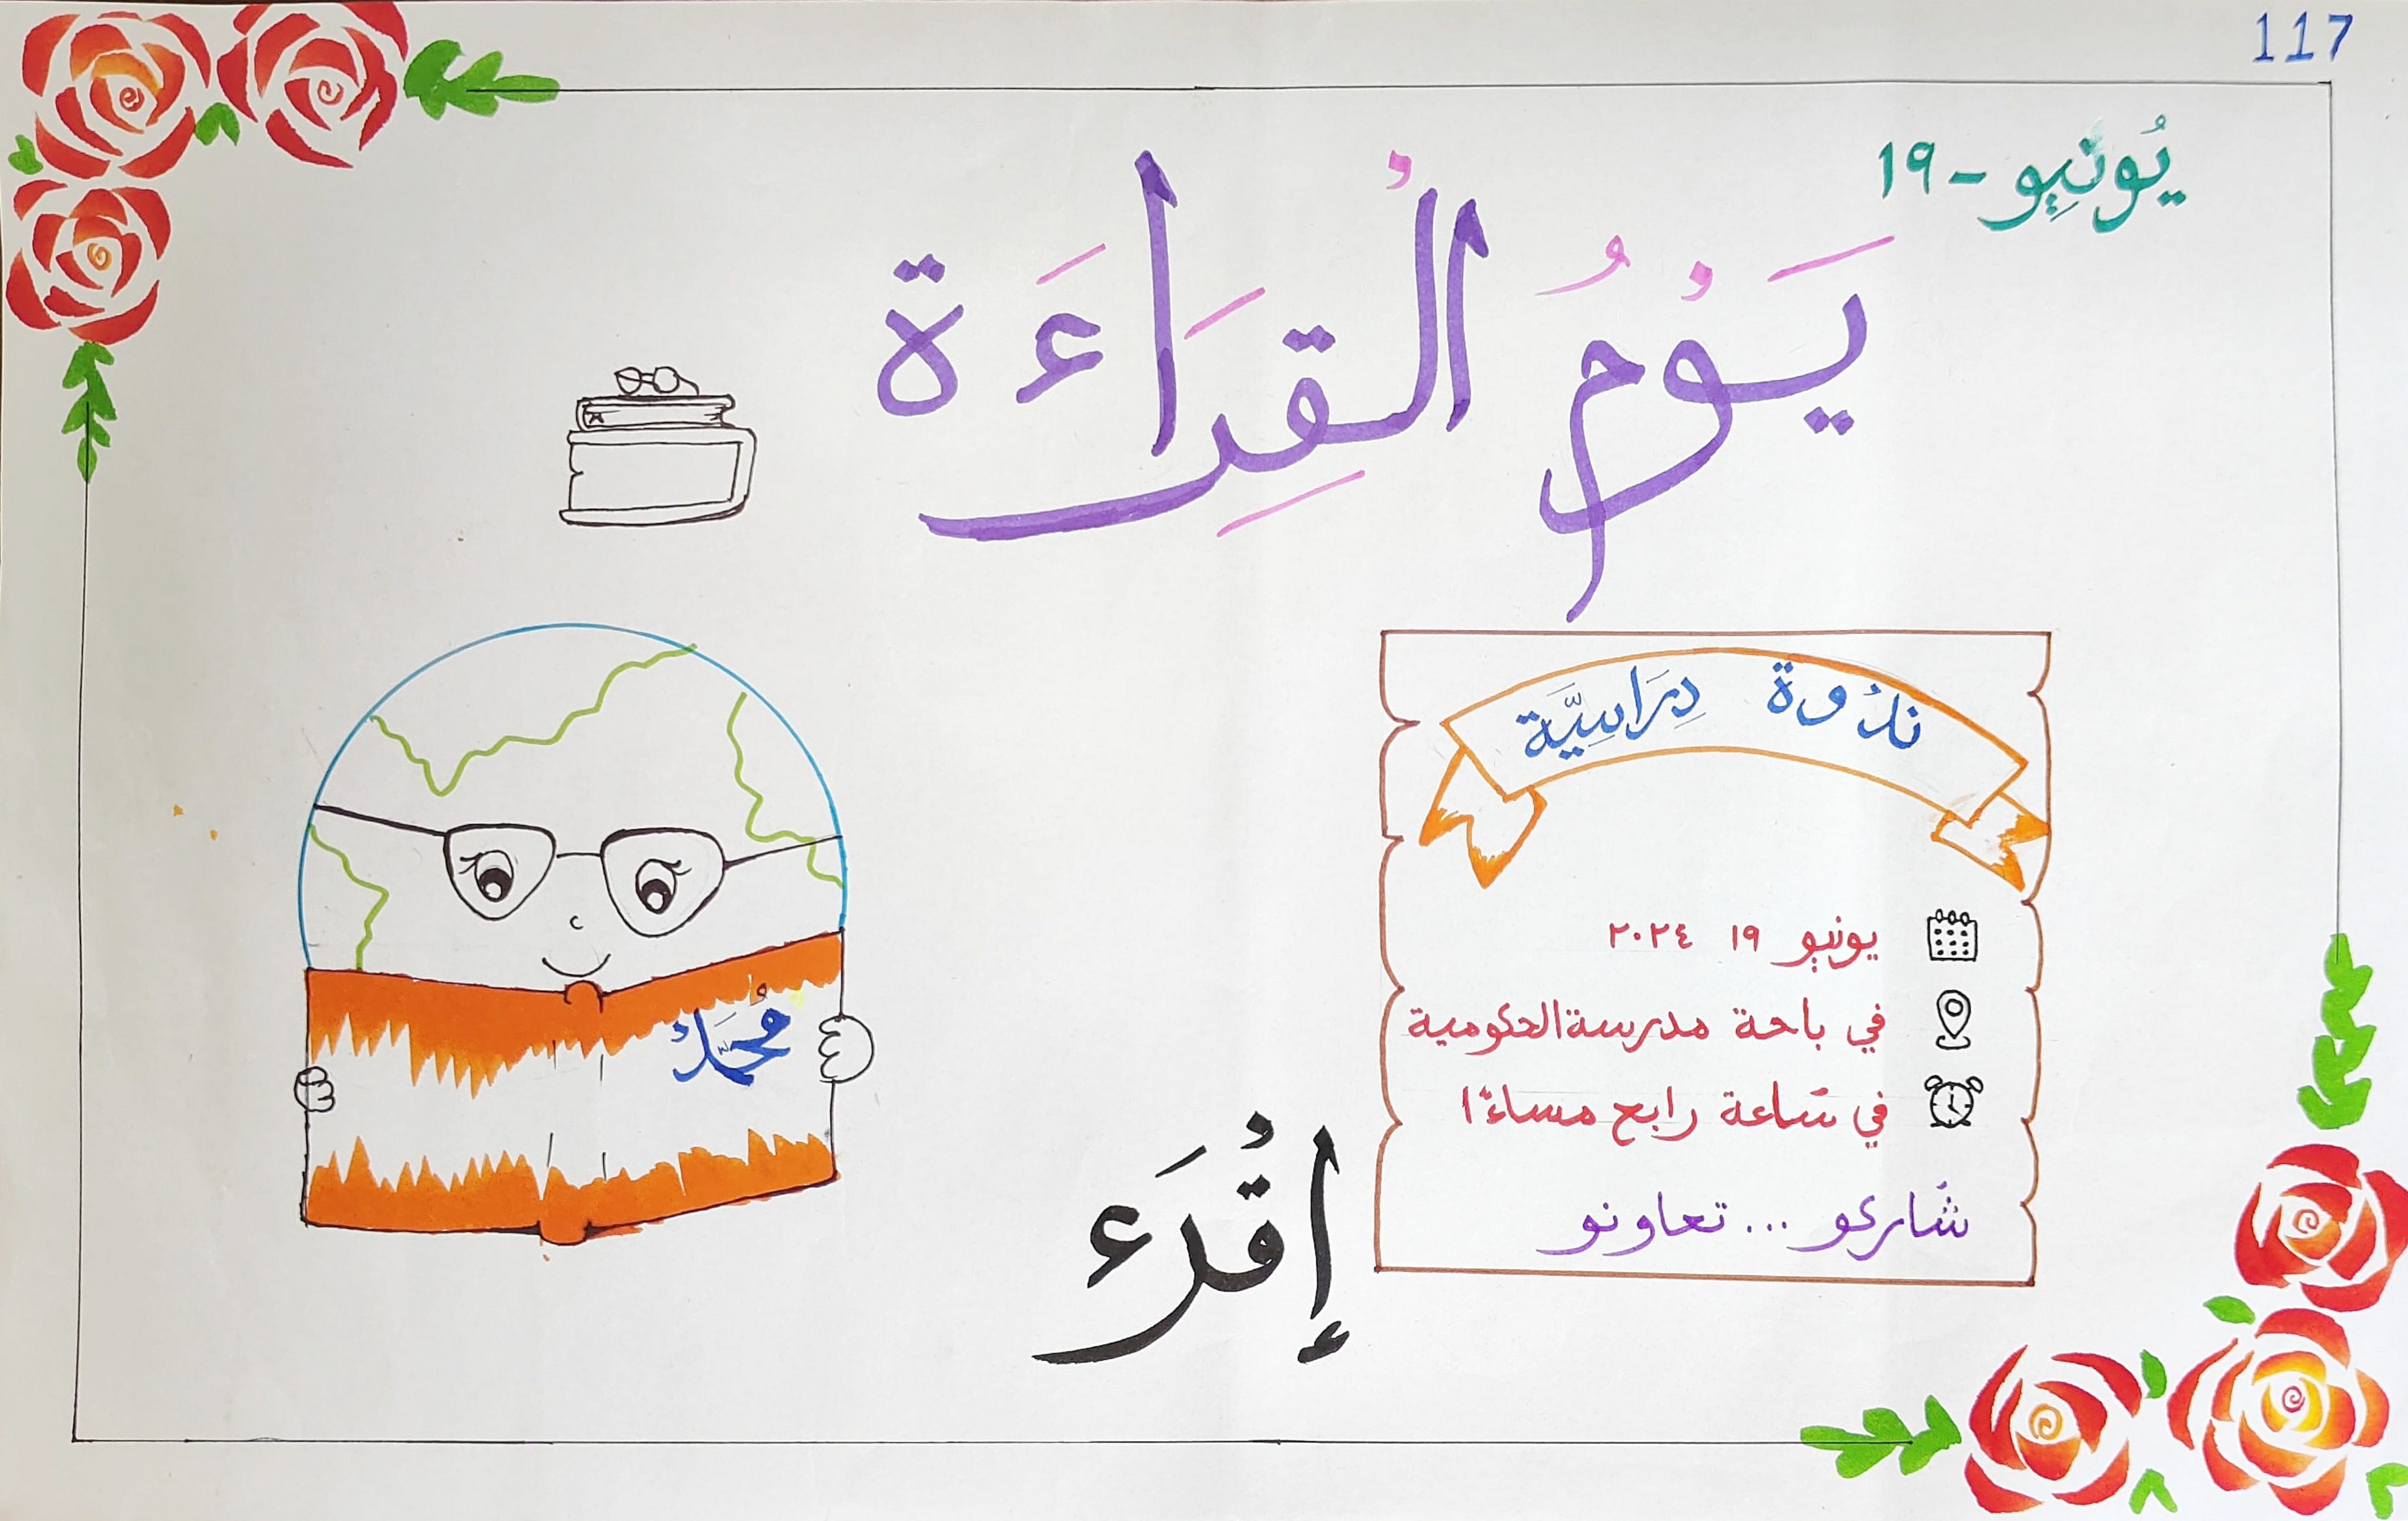 117
يُونِيو - ١٩
يَوْمُ الْقِرَاءَة
نَدْوة دِرَاسِيَّة
يونيو ١٩ ٢٠٢٤
في باحة مدرسة الحكومية
في سَاعة رابع مساءً ا
شَاركو ... تعاونو
مُحَمَّدْ
إقْرَء